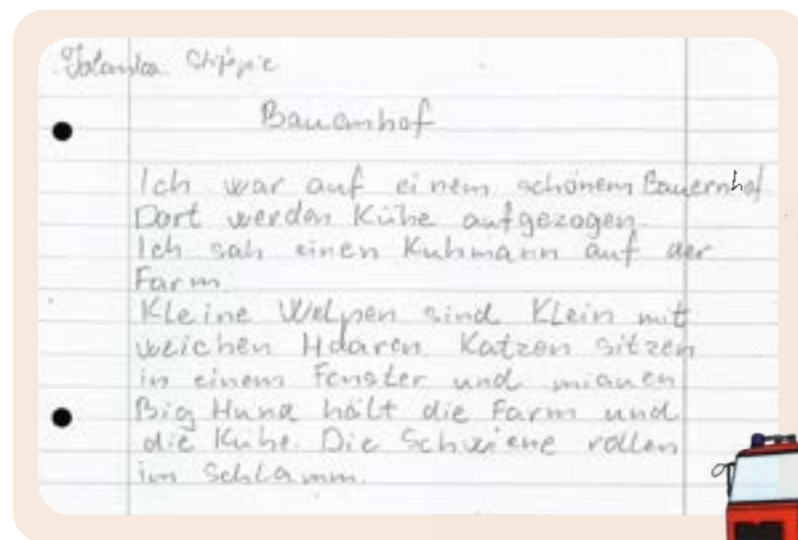 Bauernhof
Ich war auf einem schönem Bauernhof
Dort werden Kühe aufgezogen.
Ich sah einen Kuhmann auf der
Farm.
Kleine Welpen sind Klein mit
weichen Haaren Katzen sitzen
in einem Fenster und miauen
Big Hund hält die Farm und
die Kühe. Die Schwiene rollen
im Schlamm.